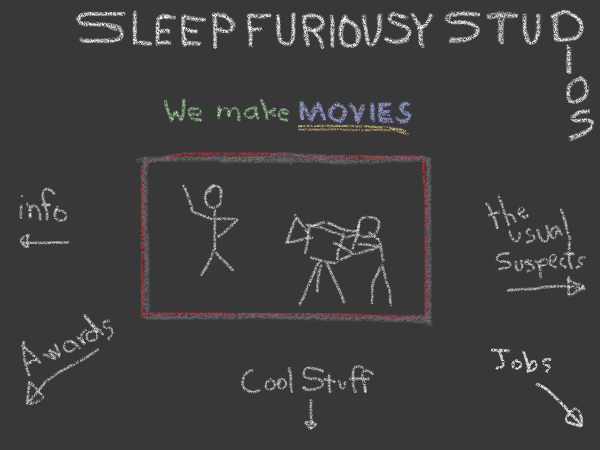 SLEEPFURIOUSY STUDIOS
We make MOVIES
info
the
usual
Suspects
Awards
Jobs
Cool Stuff